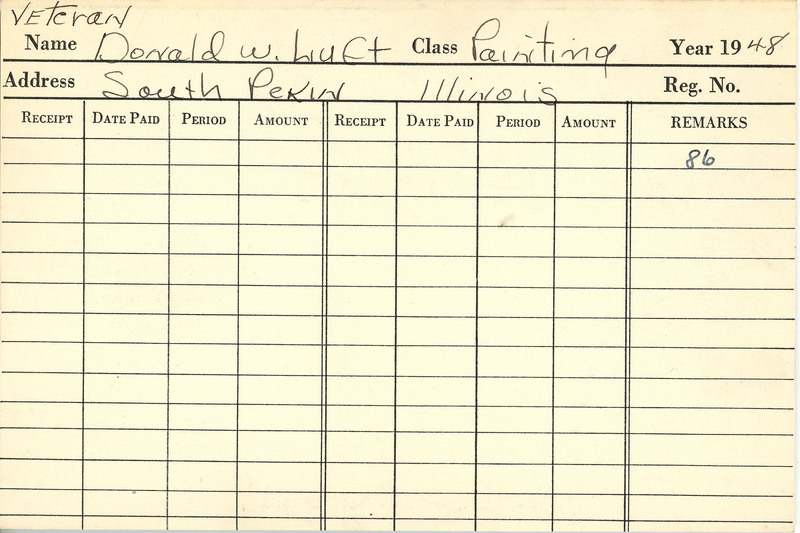 Veteran
Name Donald W. Luft Class Painting Year 1948
Address South Pekin Illinois Reg. No.
RECEIPT DATE PAID PERIOD AMOUNT RECEIPT DATE PAID PERIOD AMOUNT REMARKS
86